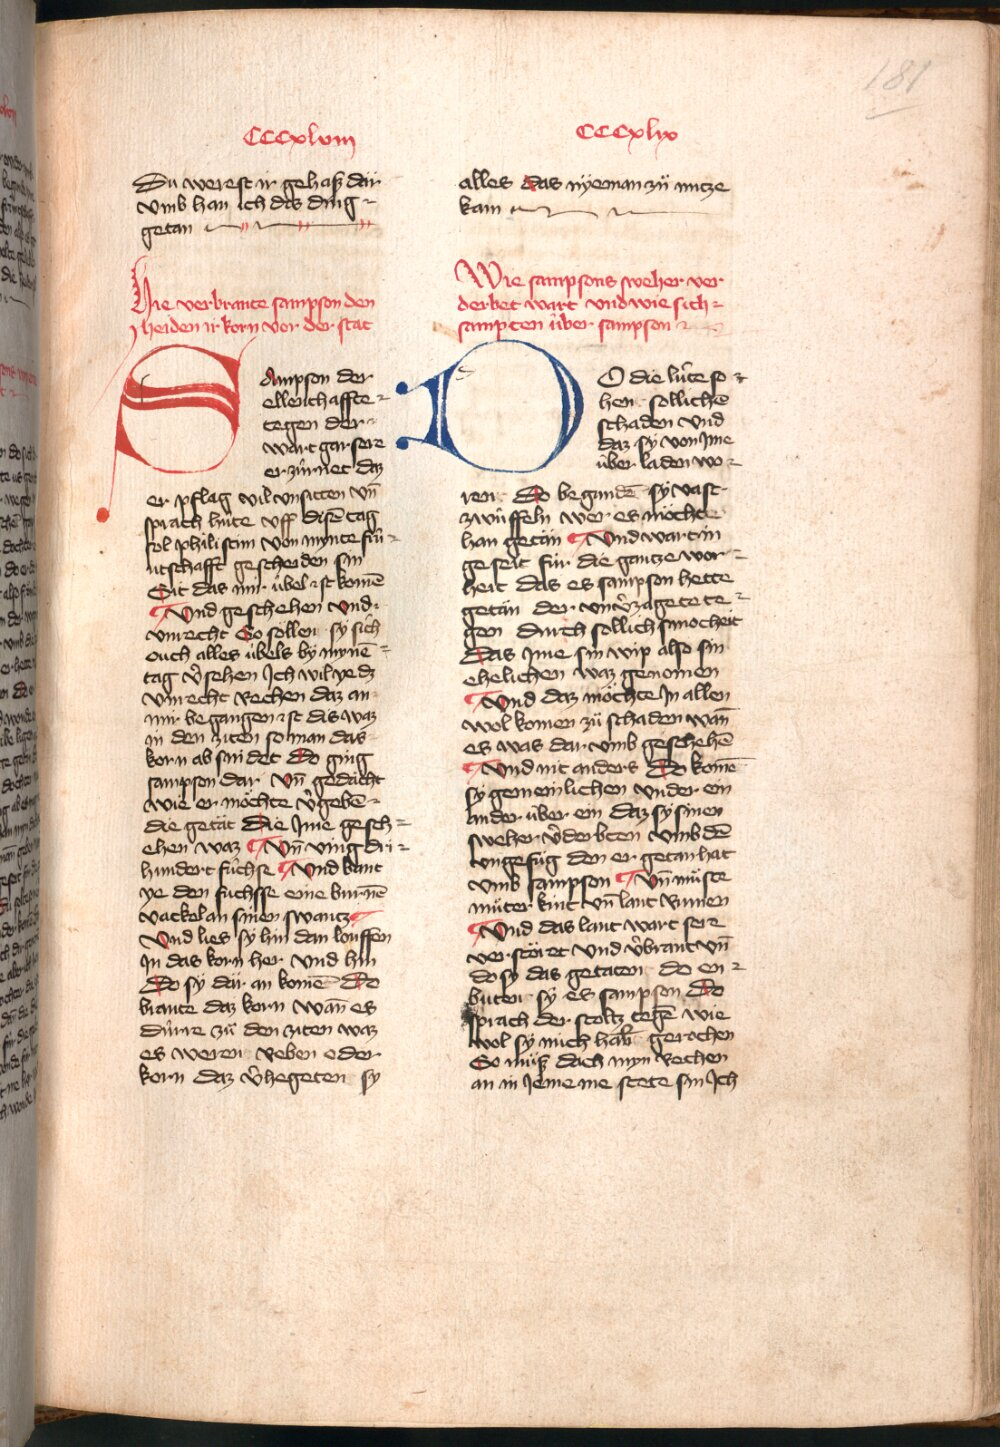 181
CCCxlviii
Du werest ir gehaß där
vmb han ich dis ding
getan
Hie verbrante sampson den
heiden ir korn vor der stat
Sampson der
ellenthaffte
tegen der
wart gar sere
erzürnet daz
er pflag vil vnsitten vn̄
sprach hüte vff disē tag
sol philistim von mynre frü
ntschafft gescheiden sin
Sit das mir übel ist komē
Vnd geschehen vnd
vnrecht So söllen sy sich
ouch alles übels by mynē
tag v̄sehen Ich wil yedz
vnrecht rechen daz an
mir begangen ist dis waz
in den ziten so man das
korn ab snidet Do ging
sampson dar vn̄ gedächt
wie er möchte v̄geben
die getät Die Ime gesch
ehen waz Vn̄ ving dri
hundert füchse Vnd bant
ye den fuchsse eine burnē
vackel an sinen swantz
Vnd lies sy hin dan louffen
In das korn her vnd hin
Do sy där an komē Do
brante daz korn wan̄ es
dürre zü den ziten waz
es weren reben oder
korn daz v̄hegeten sy
CCCxlix
alles das nÿeman zü nutze
kam
Wie sampsons sweher ver
derbet wart vnd wie sich
sampten über sampson
DO die lüte so
hen sollichē
schaden vnd
daz sy von Ime
über laden wo
ren Do begundē sy vast
zwüffeln wer es möchte
han getän Vnd wart in
geseit für die gantze wor
heit das es sampson hette
getän der vnv̄zagete te
gen durch sollich smocheit
Das Ime sin wip also sin
ehelichen waz genomen
Vnd daz möchte In allen
wol komen zü schaden wan̄
es was dar vmb geschehē
Vnd nit anders Do komē
sy gemeinlichen vnder ein
ander über ein daz sy sinen
sweher v̄derbten vmb dē
vngefüg den er getan hat
vmb sampson Vn̄ müste
müter kint vn̄ lant rinnen
Vnd das lant wart sere
verstöret vnd v̄brant vn̄
do sy das getaten do en
buten sy es sampson Do
sprach der stoltz tegē wie
wol sy mich hab̄ gerochen
So müß doch myn rechen
an in Jeme me stete sin Ich